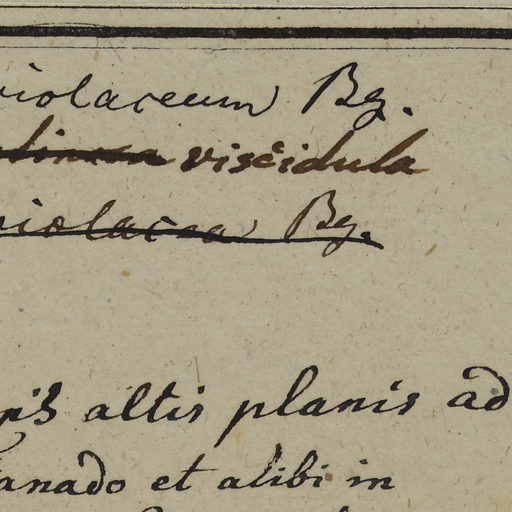 violaceum Bg.
viscidula
violacea Bg.
altis planis ad
anado et alibi in